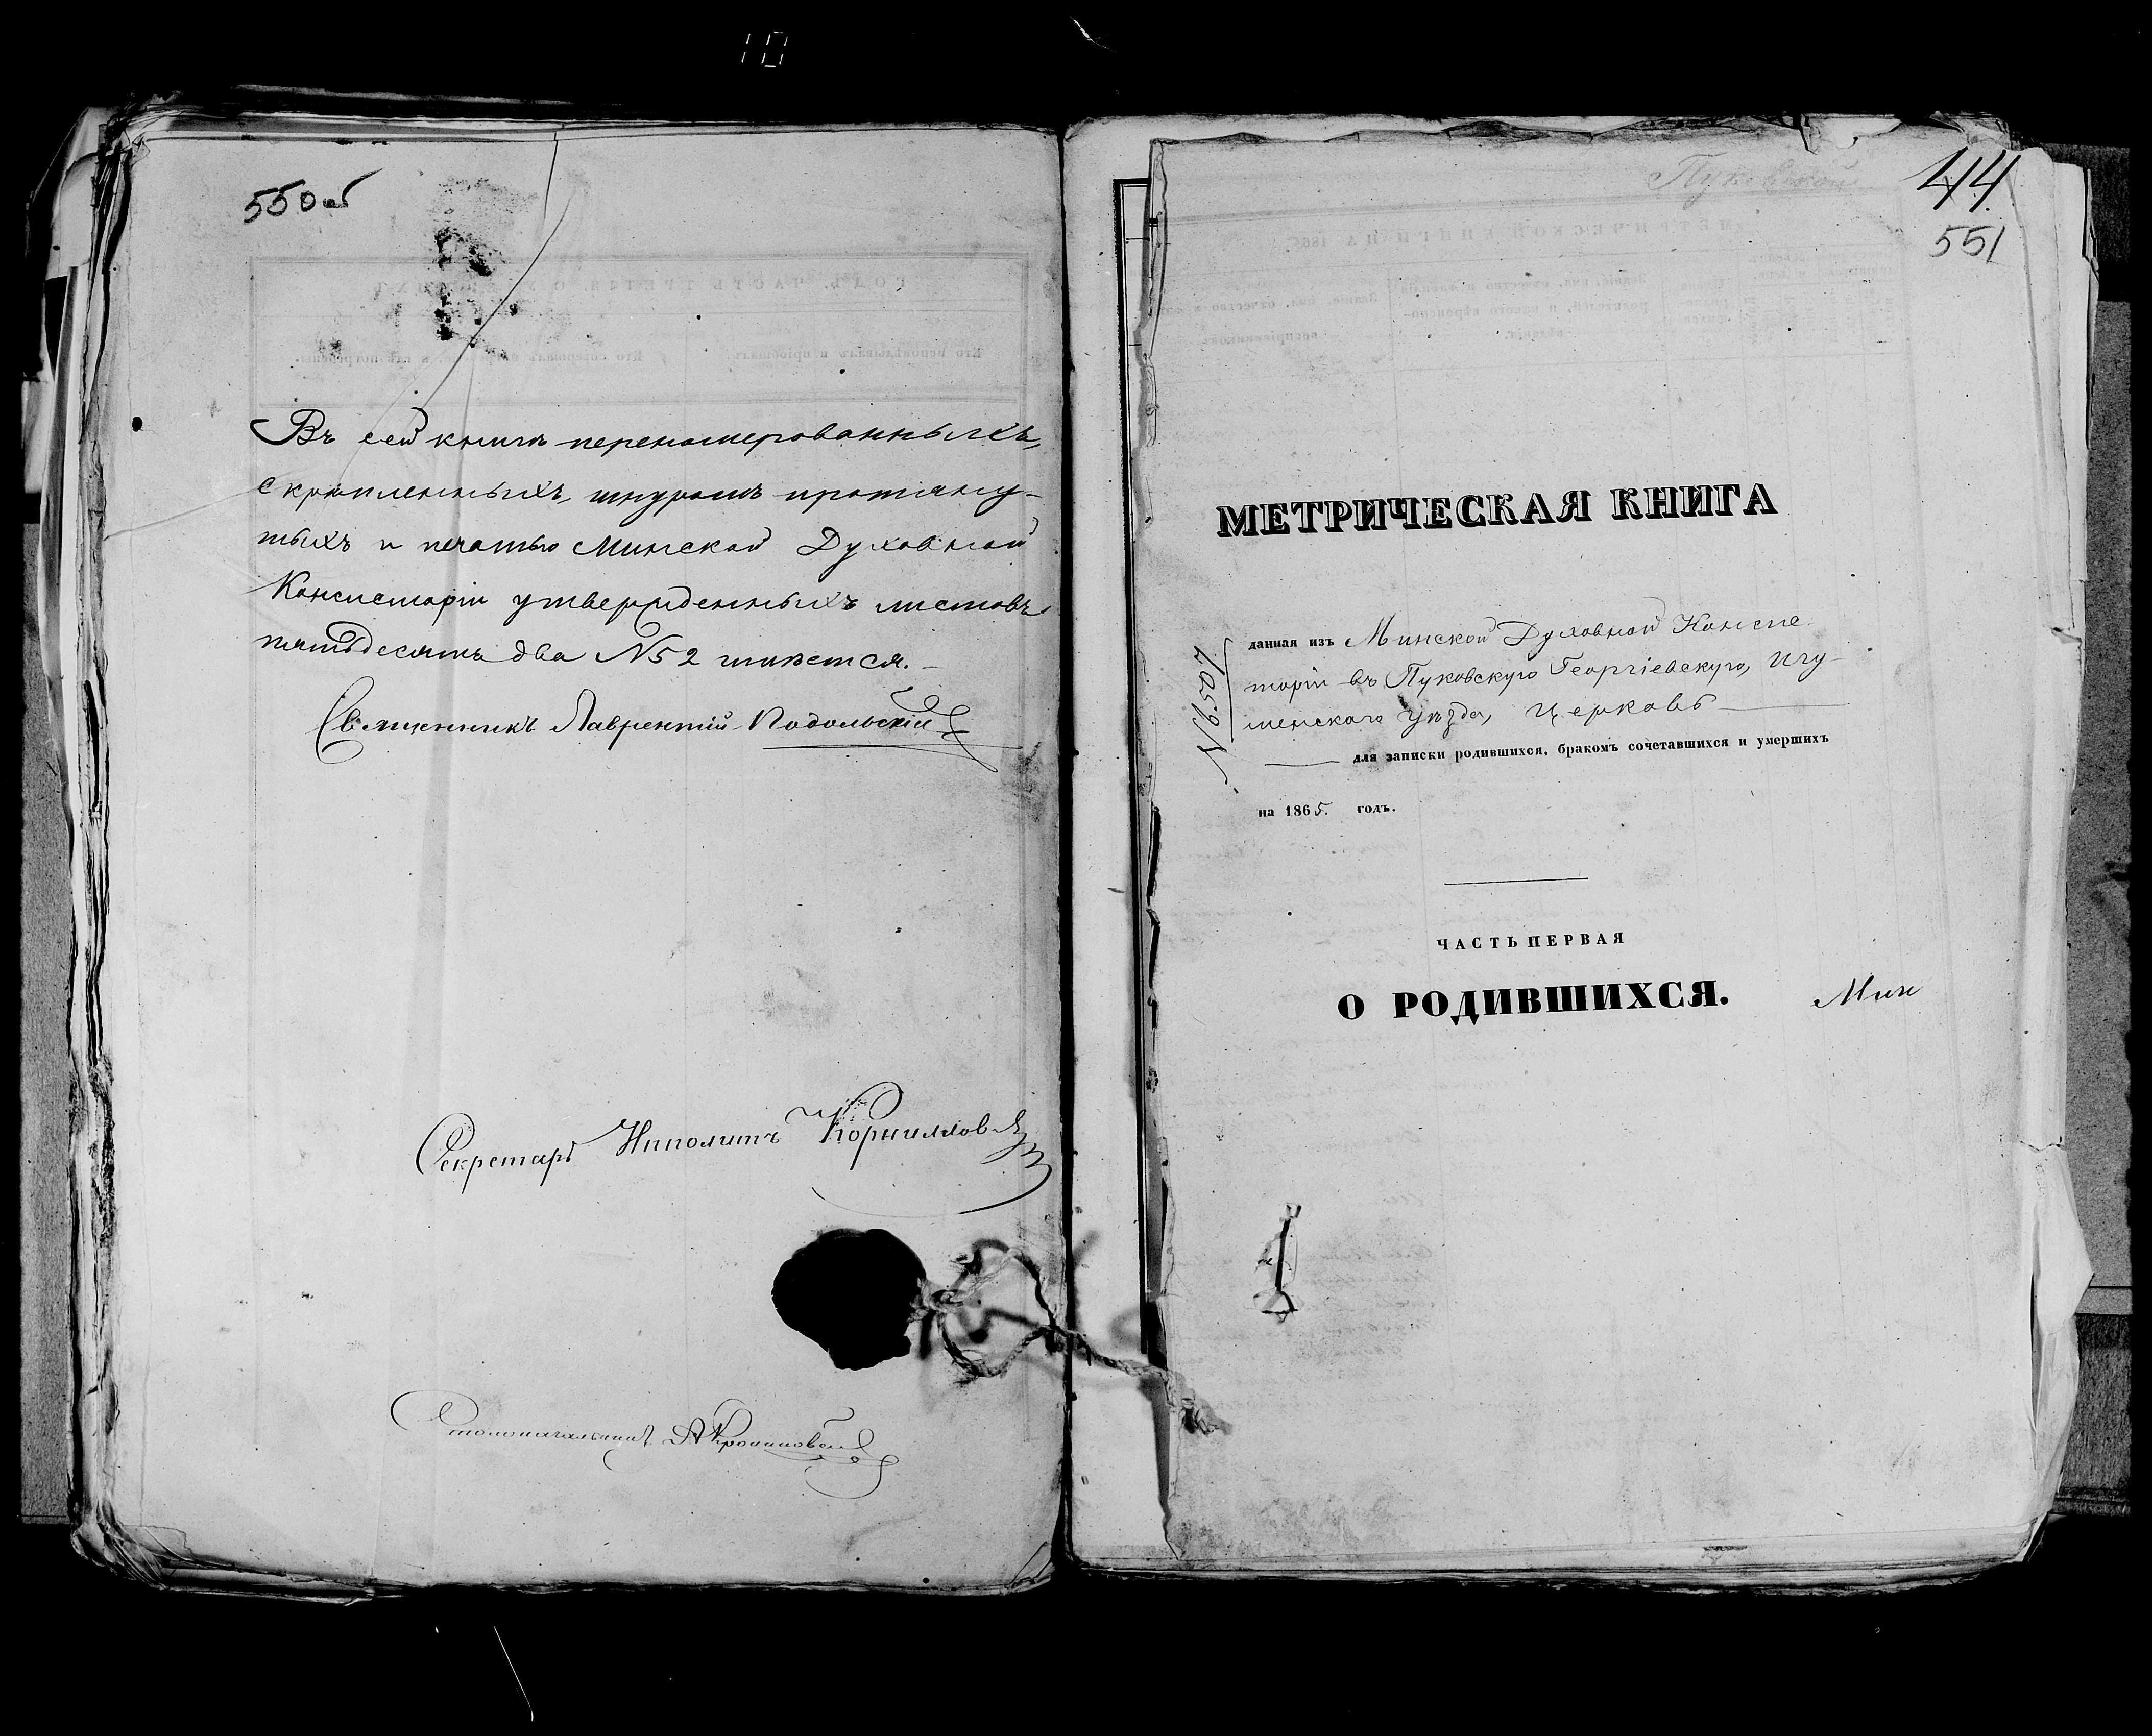 10
550 об
Въ сей книгѣ перенумерованныхъ,
скрѣпленныхъ, шнуромъ протяну-
тыхъ и печатью Минской Духовной
Консисторіи утвержденныхъ листовъ
пятьдесятъ два №52 имѣется.
Священникъ Лаврентій Подольскій
Секретарь Ипполитъ Корнилов
Столоначальникъ
Пуковской
44
551
МЕТРИЧЕСКАЯ КНИГА
данная изъ Минской Духовной Консис
торіи въ Пуковскую Георгіевскую, Игу-
менскаго уѣзда, Церковь
для записки родившихся, бракомъ сочетавшихся и умершихъ
на 1865. годъ.
ЧАСТЬ ПЕРВАЯ
О РОДИВШИХСЯ.
Мин